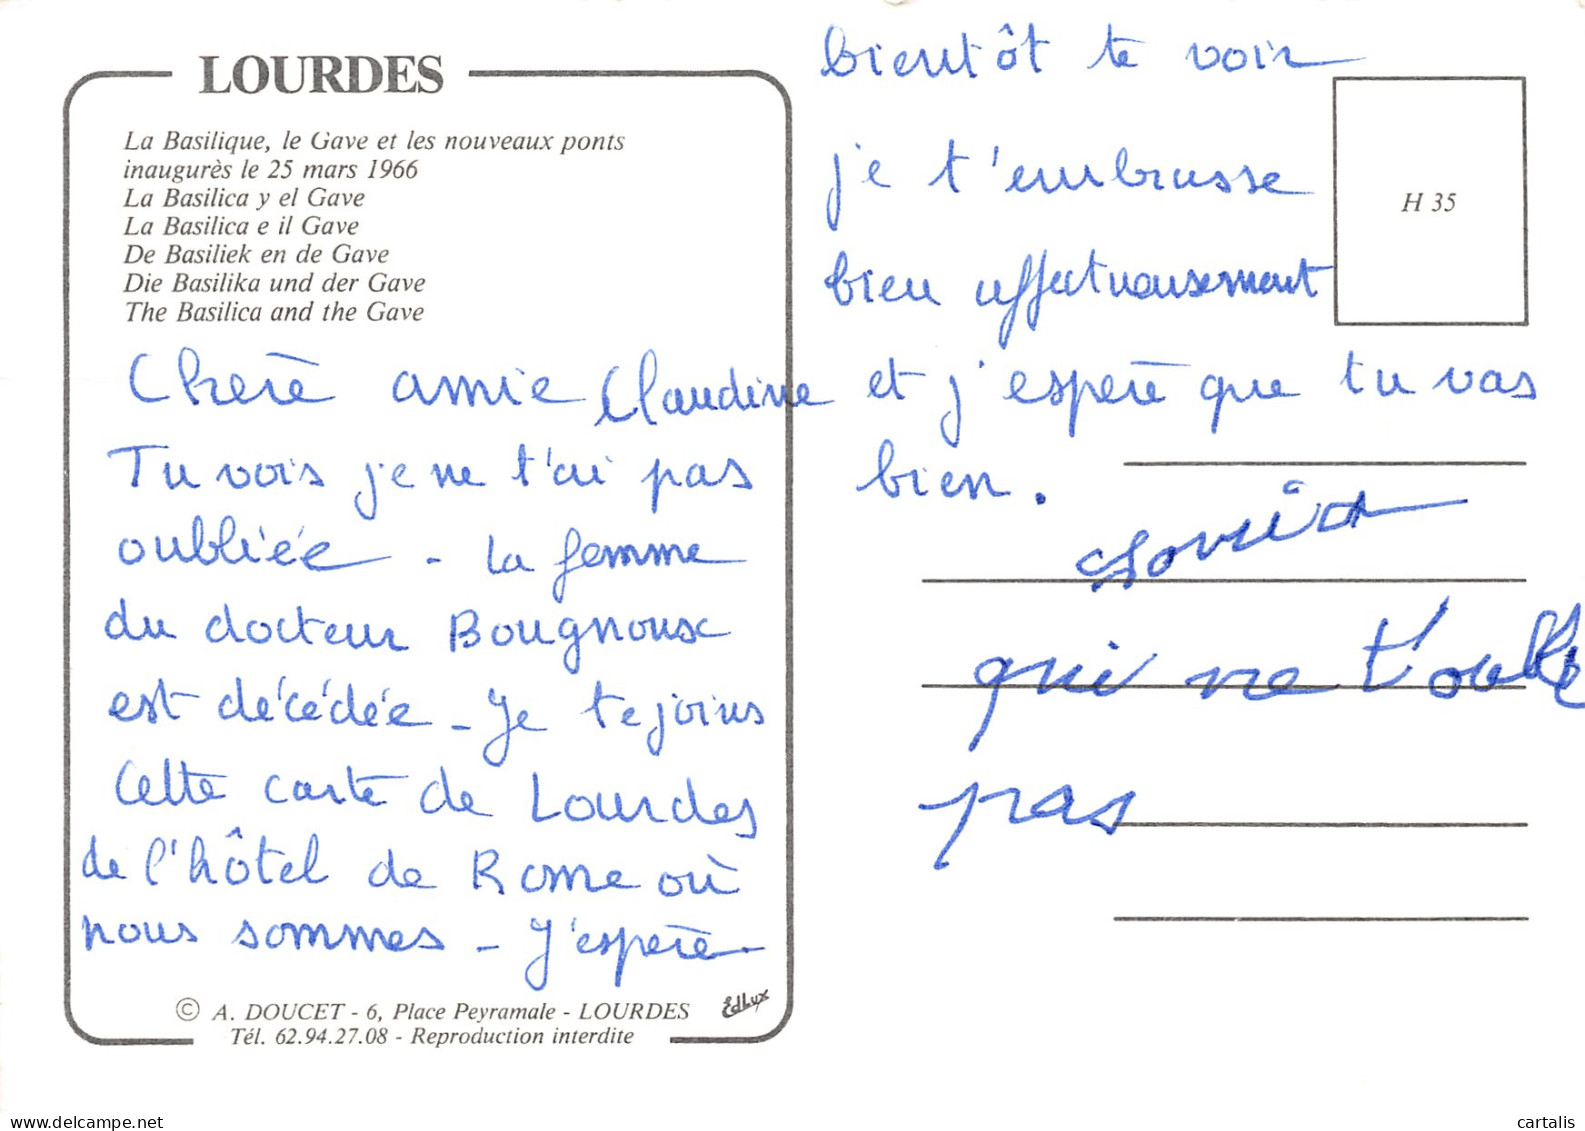 LOURDES
La Basilique, le Gave et les nouveaux ponts
inaugurès le 25 mars 1966
La Basilica y el Gave
La Basilica e il Gave
De Basiliek en de Gave
Die Basilika und der Gave
The Basilica and the Gave
Cherè amie Claudine
Tu vois je ne t'ai pas
oubliée - la femme
du docteur Bougnoux
est décédée - Je te joins
Cette carte de Lourdes
de l'hôtel de Rome où
nous sommes - J'esperè
© A. DOUCET - 6, Place Peyramale - LOURDES
EdLux
Tél. 62.94.27.08 - Reproduction interdite
bientôt te voir
je t'embrasse
bien affectueusement
et j'esperè que tu vas
bien.
H 35
qui ne t'oublie
pas
cartalis
www.delcampe.net